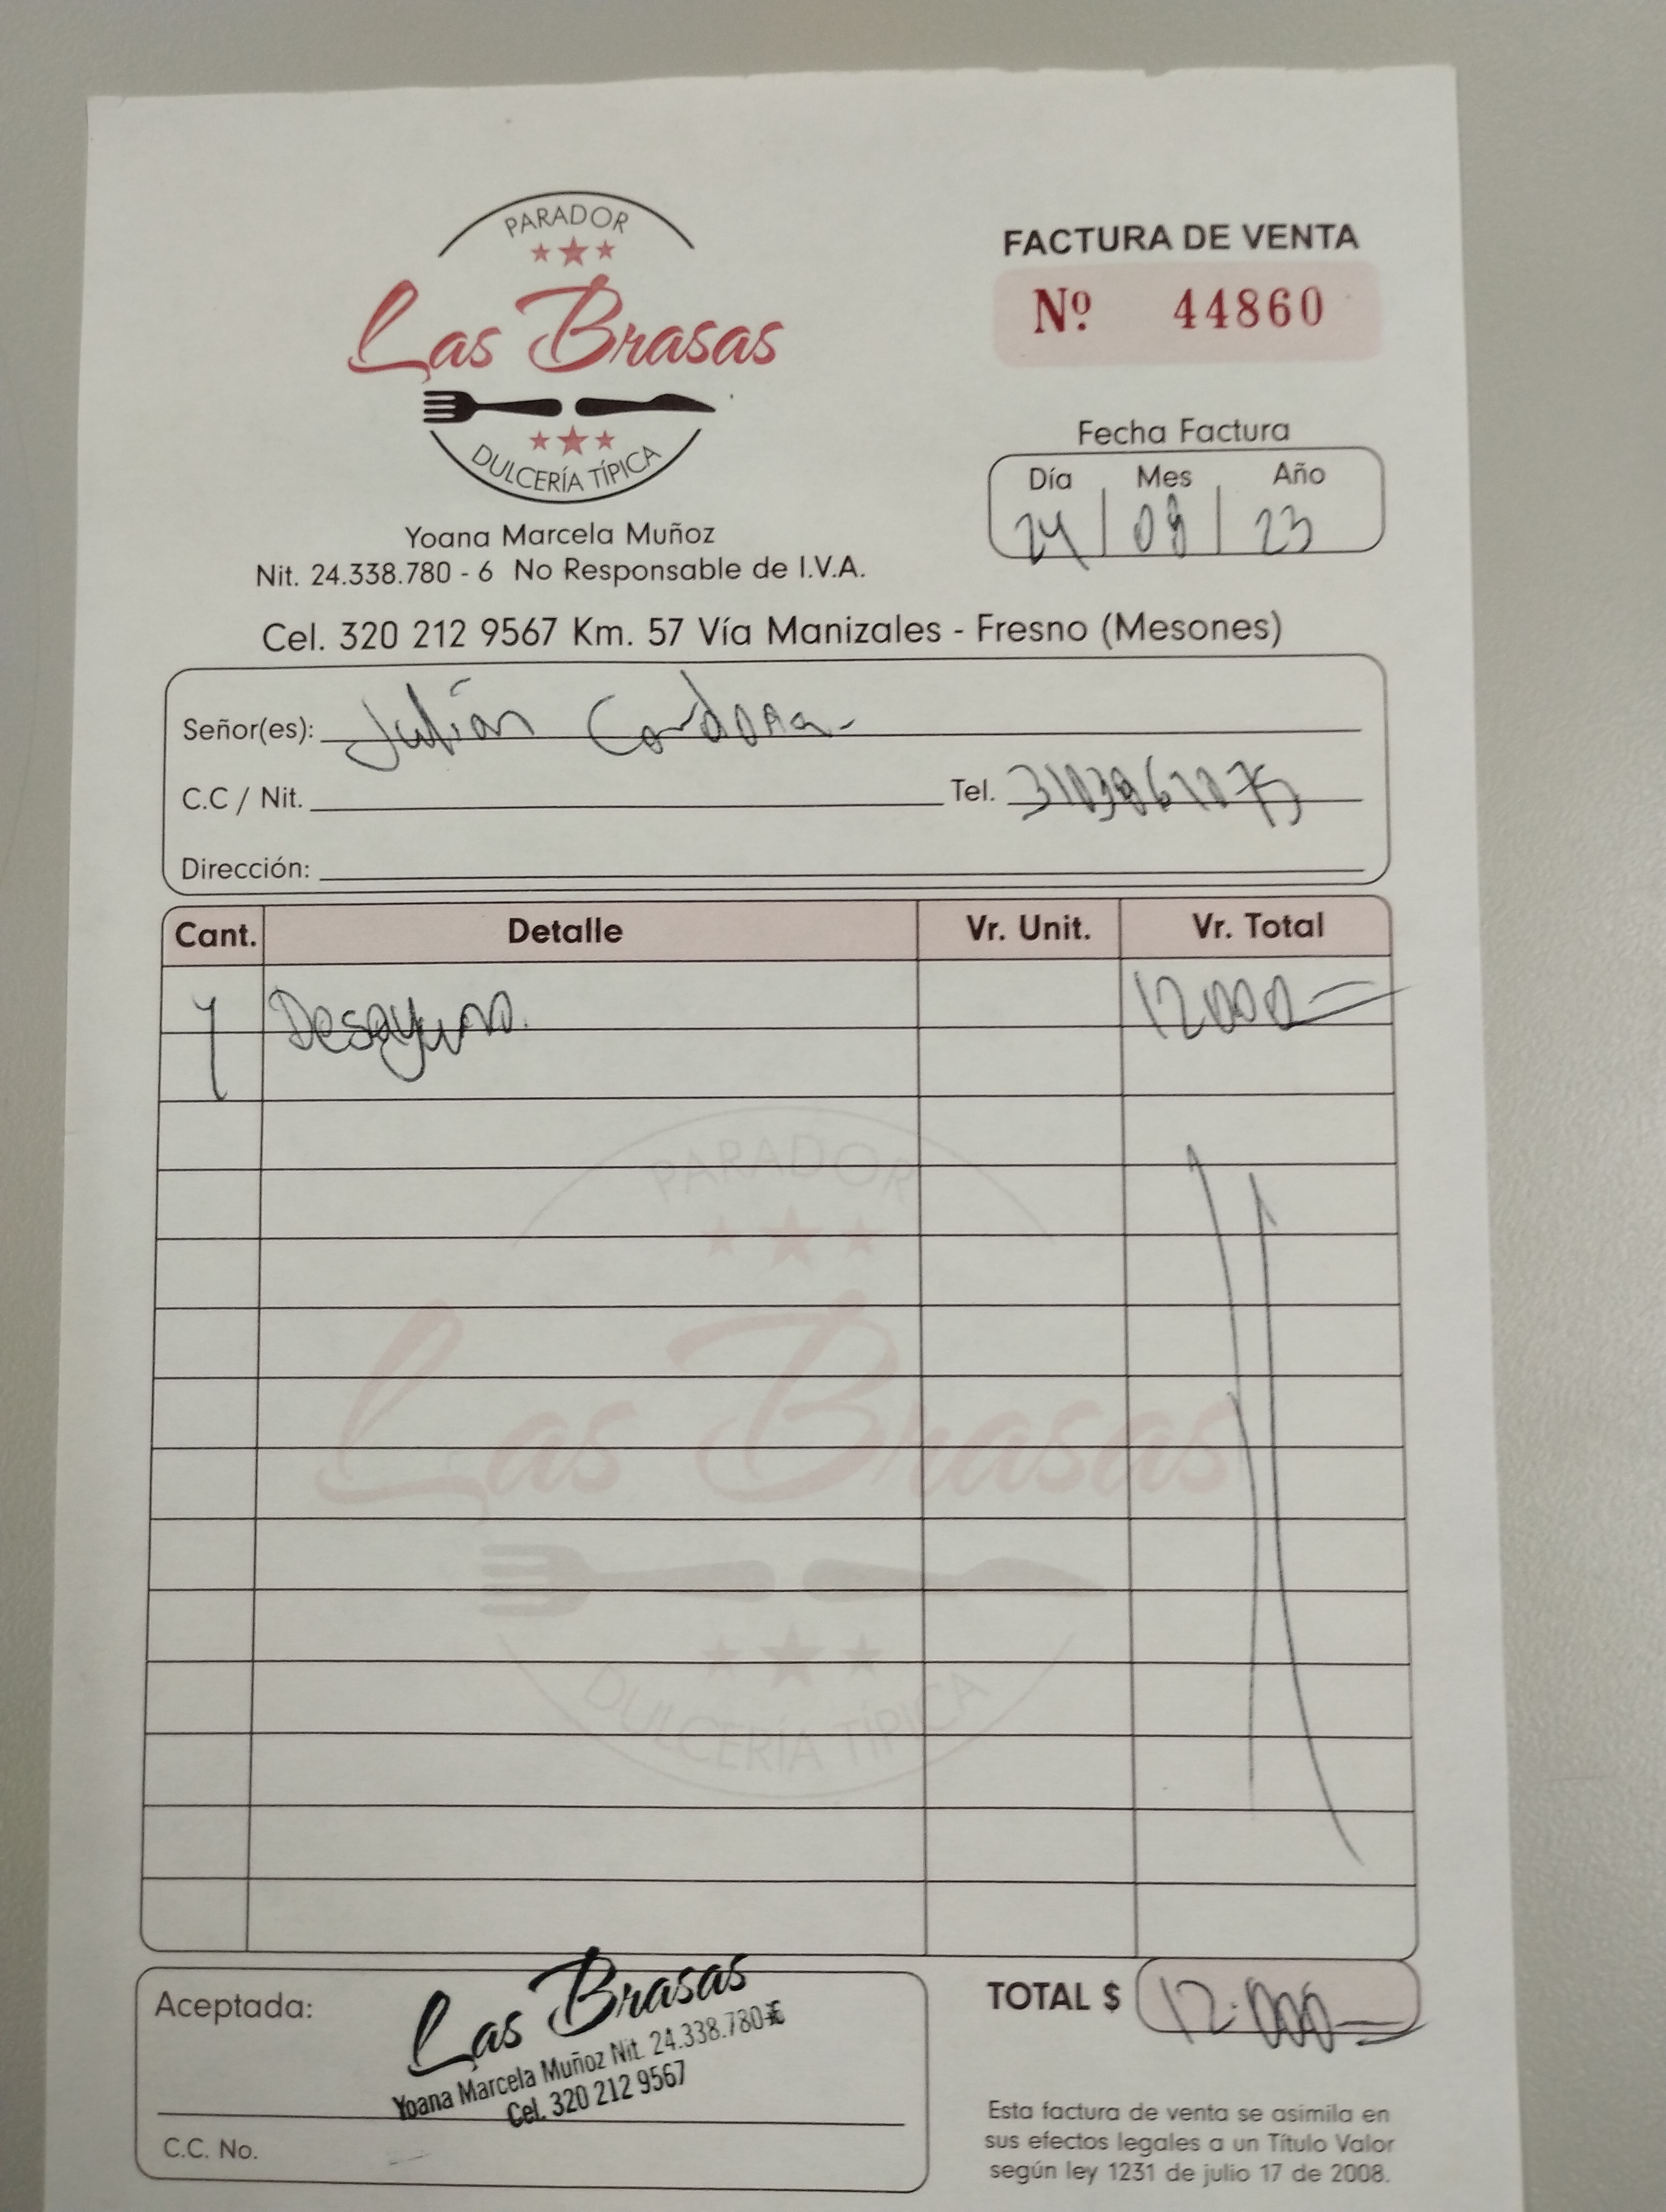 PARADOR
Las Brasas
DULCERÍA TÍPICA
Yoana Marcela Muñoz
Nit. 24.338.780 - 6 No Responsable de I.V.A.
FACTURA DE VENTA
Nº 44860
Fecha Factura
Día Mes Año
24 09 23
Cel. 320 212 9567 Km. 57 Vía Manizales - Fresno (Mesones)
Señor(es): Julián Cardona
C.C / Nit. Tel.
Dirección:
Cant. Detalle Vr. Unit. Vr. Total
1 Desayuno. 12000
PARADOR
Las Brasas
DULCERÍA TÍPICA
Aceptada:
Las Brasas
Yoana Marcela Muñoz Nit. 24.338.780-6
Cel. 320 212 9567
C.C. No.
TOTAL $ 12.000
Esta factura de venta se asimila en
sus efectos legales a un Título Valor
según ley 1231 de julio 17 de 2008.